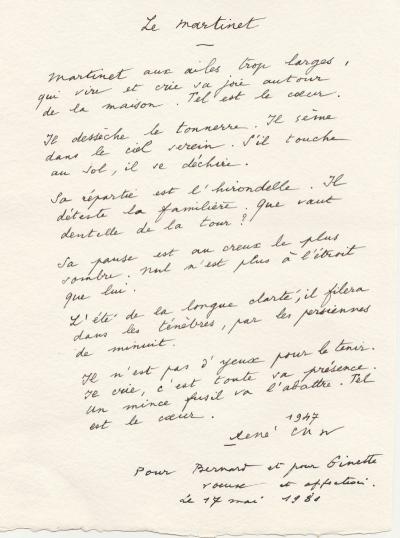 Le martinet
Martinet aux ailes trop larges,
qui vire et crie sa joie autour
de la maison. Tel est le cœur.
Il dessèche le tonnerre. Il sème
dans le ciel serein. S'il touche
au sol, il se déchire.
Sa répartie est l'hirondelle. Il
déteste la familière. Que vaut
dentelle de la tour?
Sa pause est au creux le plus
sombre. Nul n'est plus à l'étroit
que lui.
L'été de la longue clarté, il filera
dans les ténèbres, par les persiennes
de minuit.
Il n'est pas d'yeux pour le tenir.
Il crie, c'est toute sa présence.
Un mince fusil va l'abattre. Tel
est le cœur.
1947
René Char
Pour Bernard et pour Ginette
et
Le 17 mai 1981